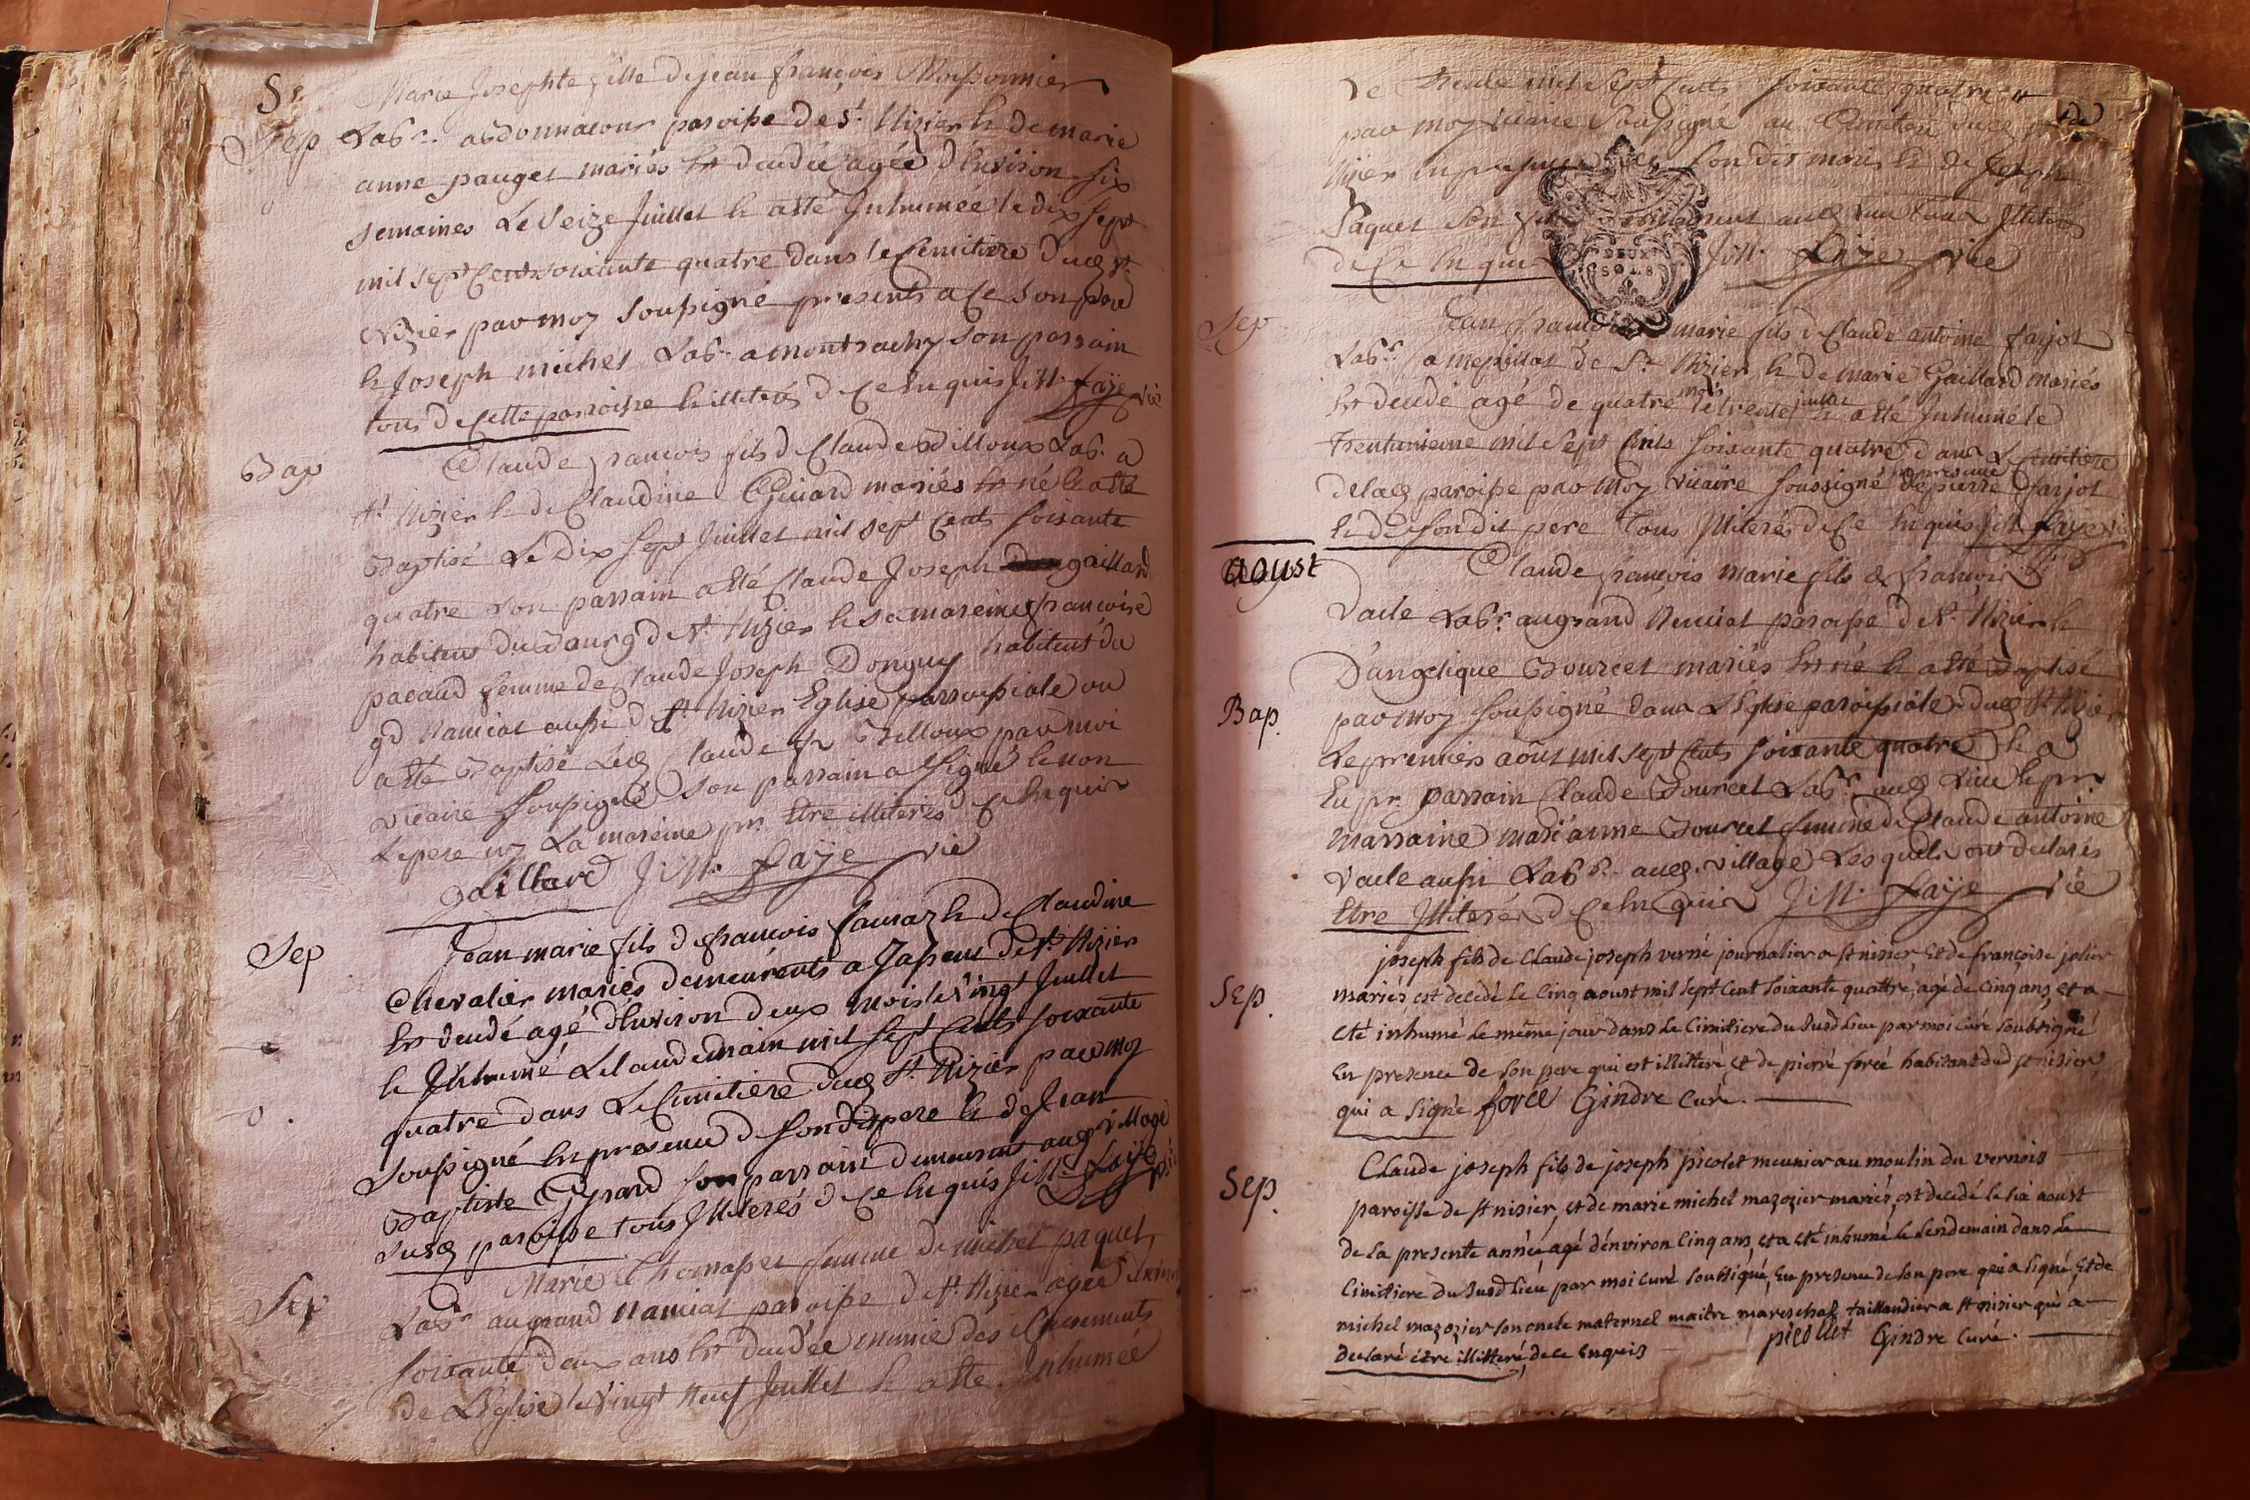 Sr.
Sep
Marie Josephte fille de jean françois Moissonnier
Labr. paroisse de st. Nizier & de marie
anne pauget mariés est decedée agée d'Environ six
semaines Le Seize Juillet & a Eté Inhumée le dix sept
mil sept Cent soixante quatre dans le Cemitiere dud st.
Nizier par moy soussigné presents a Ce son pere
& Joseph michel Labr. a montrachy son parrain
tous de Cette parroisse & illiterés de Ce Enquis J:M: Laÿe vic
Bap
Claude françois fils de Claude Billoux Labr. a
st. Nizier & de Claudine Guiard mariés est né & a Eté
Baptisé Le Dix sept Juillet mil sept Cents soixante
quatre son parrain a Eté Claude Joseph gaillard
habitant du Bourg de st. Nizier & sa mareine françoise
pacaud femme de Claude Joseph Donguy habitent du
gd Nanciat aussi de st. Nizier Eglise parroissiale ou
a Eté Baptisé Led Claude fr Billoux par moi
vicaire soussigné son parrain a signé & non
Lepere ny La mareine pr. Etre illiterés de Ce Enquis
Gaillard J:M: Laÿe vic
Sep
Jean marie fils de françois & de Claudine
Chevalier mariés demeurents a de st. Nizier
Est decedé agé d'Environ deux mois le vingt Juillet
& Inhumé Lelandemain mil sept Cents soixante
quatre dans Le Cimitiere dud st. Nizier par moy
soussigné En presence de son dit pere & de Jean
Baptiste Gyrard son parrain demeurant aud village
susd paroisse tous Illiterés de Ce Enquis J:M: Laÿe vic
Sep
Marie femme de michel paquet
Labr au grand Nanciat paroisse de st. Nizier agée
soixante deux ans Est decedée munie des sacrements
de L'Eglise le vingt Neuf Juillet & a Eté Inhumée
Le Trente mil Sept Cents soixante quatre
par moy vicaire soussigné au Cimitiere dud
Nizier En presence de son dit mari & de Joseph
Paquet son fils Illiterés
de Ce Enquis J:M: Laÿe vic
DEUX
SOLS
Sep
Jean françois marie fils de Claude antoine farjot
Labr. a mepillat de St. Nizier & de marie Gaillard mariés
Est decedé agé de quatre mois le trente juillet & a Eté Inhumé le
trentunieme mil sept Cents soixante quatre dans Le Cimitiere
de lad paroisse par moy vicaire soussigné en presence de pierre farjot
& de son dit pere Tous Illiterés de Ce Enquis J:M: Laÿe vic
Aoust
Bap.
Claude françois marie fils de françois
vacle Labr. au grand Nenciat paroisse de St. Nizier &
D'angelique Bourcet mariés Est né & a Eté Baptisé
par moy soussigné dans L'Eglise paroissiale dud St. Nizier
Le premier août mil sept Cents soixante quatre & a
Eu pr. parrain Claude Bourcet Labr. aud Lieu & pr
marraine marianne Bourcet femme de Claude antoine
vacle aussi Labr. aud. village Lesquels ont declarés
Etre Illiterés de Ce Enquis J:M: Laÿe vic
Sep.
joseph fils de Claude joseph verné journalier a st nisier et de françoise jolier
mariés est decedé le cinq aoust mil sept cent soixante quattre, agé de cinq ans, et a
eté inhumé le même jour dans le cimitiere du susd lieu par moi curé soubsigné
En presence de son pere qui est illitteré, et de pierre forcé habitant dud st nisier
qui a signé forcé Gindre curé.
Sep.
Claude joseph fils de joseph picolet meunier au moulin du vernois
paroisse de st nisier, et de marie michel mazozier mariés, est decedé le six aoust
de la presente année agé d'environ cinq ans, et a eté inhumé le lendemain dans le
cimitiere du susd lieu par moi curé soubsigné, En presence de son pere qui a signé, et de
michel mazozier son oncle maternel maitre mareschal taillandier a st nisier qui a
declaré être illitteré, de ce enquis picollet Gindre curé.